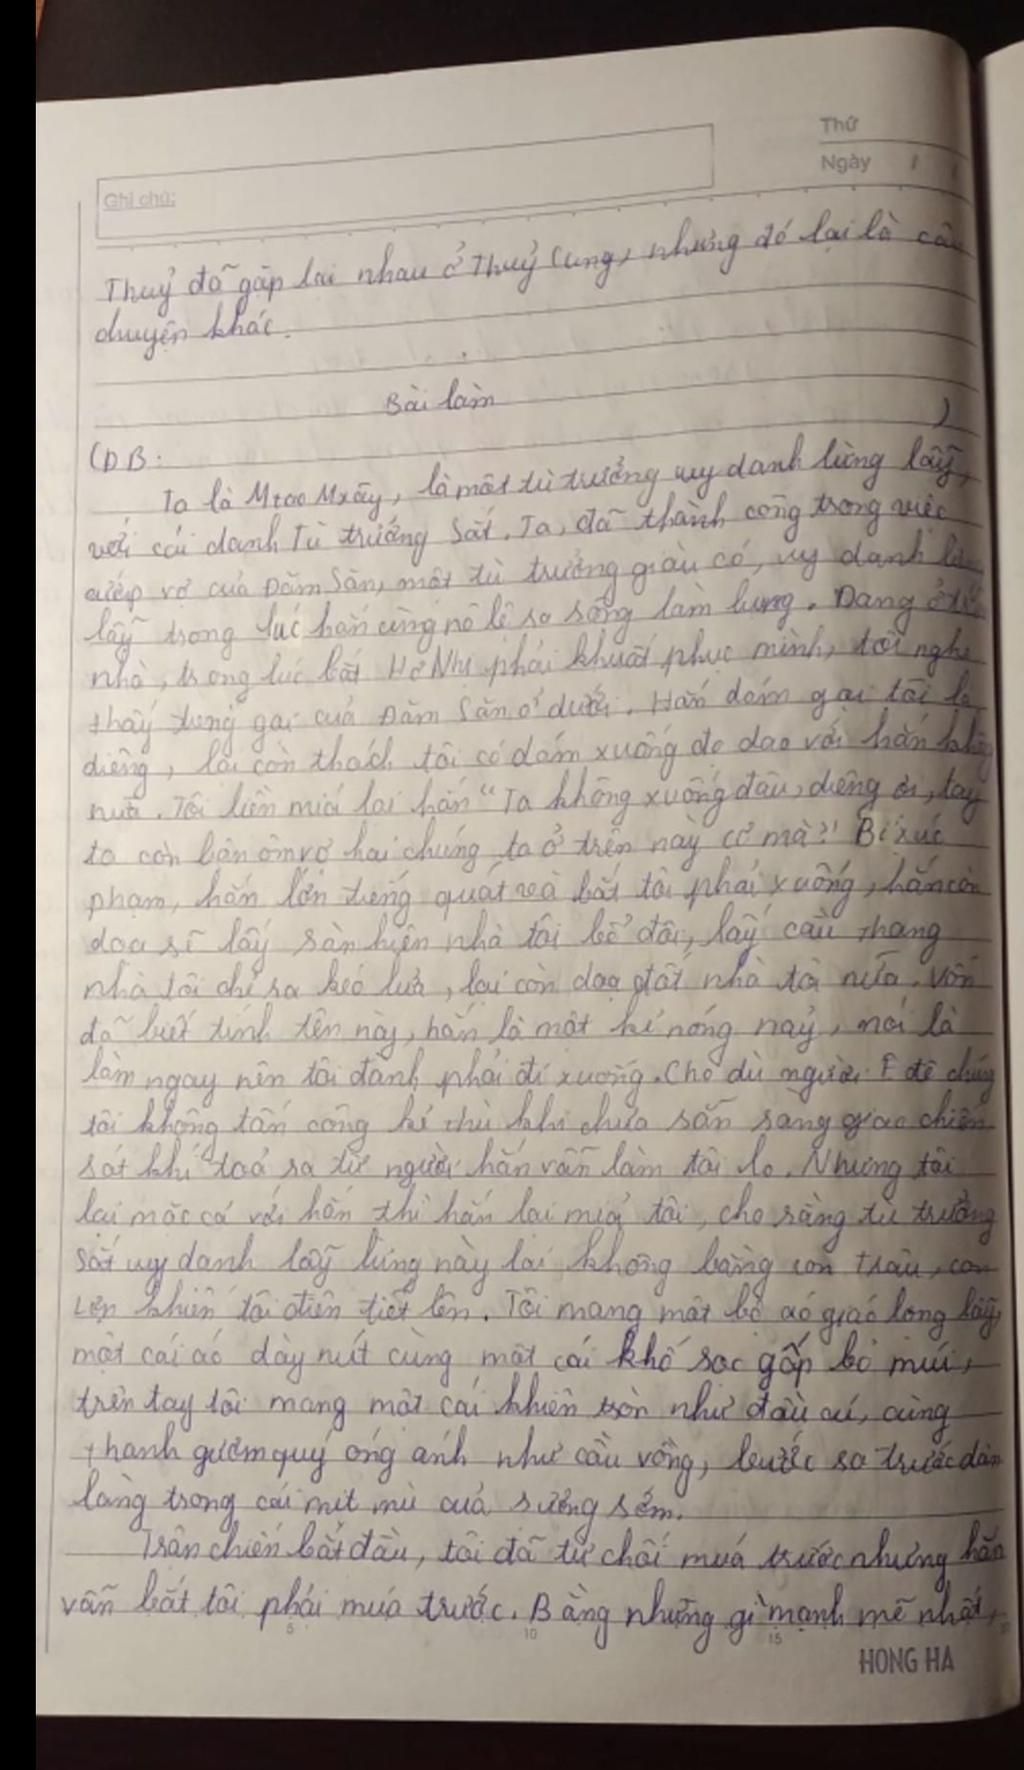 Thứ
Ngày / /
Ghi chú:
Thuỷ đã gặp lại nhau ở Thuỷ Cung, nhưng đó lại là câu
chuyện khác.
Bài làm
(ĐB: )
Ta là Mtao Mxây, là một tù trưởng uy danh lừng lẫy,
với cái danh Tù trưởng Sắt. Ta, đã thành công trong việc
cướp vợ của Đăm Săn, một tù trưởng giàu có, uy danh lừng
lẫy trong lúc hắn cùng nô lệ ra sông làm lụng. Đang ở trên
nhà, trong lúc bắt Hơ Nhị phải khuất phục mình, tôi nghe
thấy tiếng gọi của Đăm Săn ở dưới. Hắn dám gọi tôi là
diêng, lại còn thách tôi có dám xuống đọ dao với hắn không
nữa. Tôi liền mỉa lại hắn "Ta không xuống đâu, diêng ơi, tay
ta còn bận ôm vợ hai chúng ta ở trên này cơ mà?" Bị xúc
phạm, hắn lớn tiếng quát và bắt tôi phải xuống, hắn còn
doạ sẽ lấy sàn hiên nhà tôi bổ đôi, lấy cầu thang
nhà tôi chẻ ra kéo lửa, lại còn doạ đốt nhà tôi nữa. Vốn
đã biết tính tên này, hắn là một kẻ nóng nảy, nói là
làm ngay nên tôi đành phải đi xuống. Cho dù người Ê đê chúng
tôi không tấn công kẻ thù khi chưa sẵn sàng giao chiến
sát khí toả ra từ người hắn vẫn làm tôi lo. Nhưng tôi
lại mặc cả với hắn thì hắn lại mỉa tôi, cho rằng tù trưởng
sắt uy danh lẫy lừng này lại không bằng con trâu, con
Lợn khiến tôi điên tiết lên. Tôi mang một bộ áo giáp lộng lẫy,
một cái áo dày nút cùng một cái khố sọc gấp bỏ múi,
trên tay tôi mang một cái khiên tròn như đầu cú, cùng
thanh gươm quý óng ánh như cầu vồng, bước ra trước dân
làng trong cái mịt mù của sương sớm.
Trận chiến bắt đầu, tôi đã từ chối múa trước nhưng hắn
vẫn bắt tôi phải múa trước. Bằng những gì mạnh mẽ nhất,
5 10 15
HONG HA